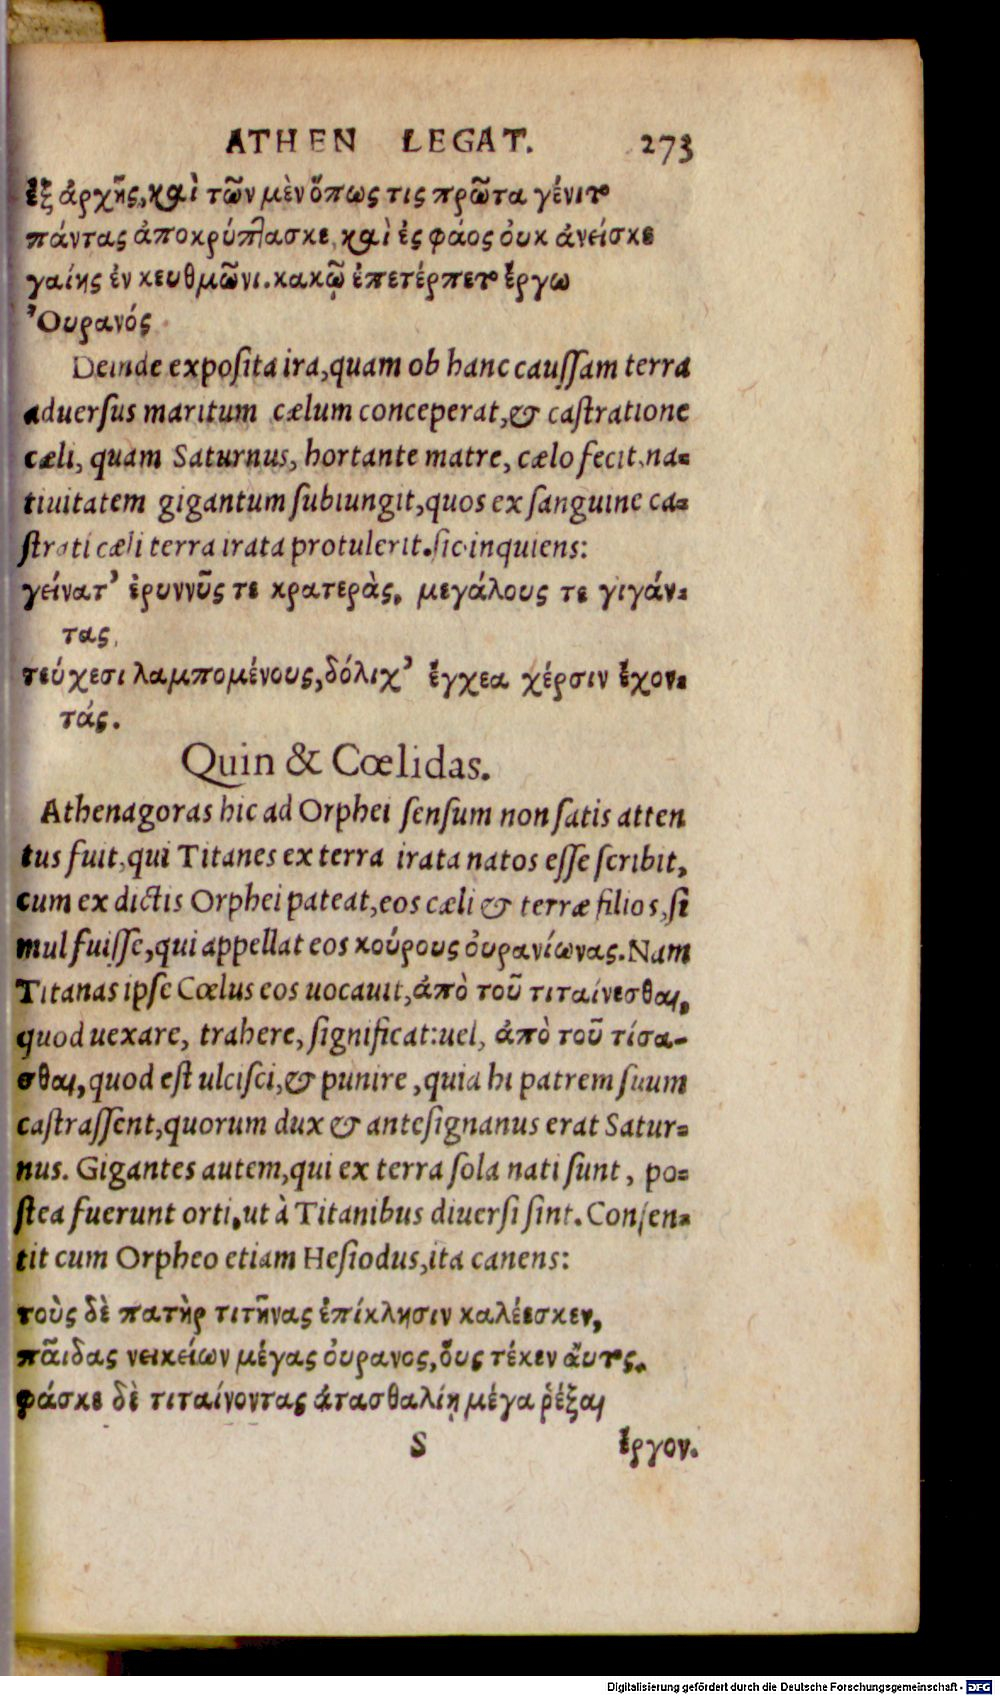 ATHEN LEGAT. 273
ἐξ ἀρχῆς, καὶ τῶν μὲν ὅπως τις πρῶτα γένιτο
πάντας ἀποκρύπτασκε, καὶ ἐς φάος ὀυκ ἀνείσκε
γαίης ἐν κευθμῶνι. κακῷ ἐπετέρπετο ἔργω
Ὀυρανός
Deinde exposita ira, quam ob hanc caussam terra
aduersus maritum cælum conceperat, & castratione
cæli, quam Saturnus, hortante matre, cælo fecit, na-
tiuitatem gigantum subiungit, quos ex sanguine ca-
strati cæli terra irata protulerit. sic inquiens:
γείνατ’ ἐρυννῦς τε κρατερὰς, μεγάλους τε γιγάν-
τας,
τεύχεσι λαμπομένους, δόλιχ’ ἔγχεα χέρσιν ἔχον-
τάς.
Quin & Cœlidas.
Athenagoras hic ad Orphei sensum non satis atten
tus fuit, qui Titanes ex terra irata natos esse scribit,
cum ex dictis Orphei pateat, eos cæli & terræ filios, si
mul fuisse, qui appellat eos κούρους ὀυρανίωνας. Nam
Titanas ipse Cœlus eos uocauit, ἀπὸ τοῦ τιταίνεσθαι,
quod uexare, trahere, significat: uel, ἀπὸ τοῦ τίσα-
σθαι, quod est ulcisci, & punire, quia hi patrem suum
castrassent, quorum dux & antesignanus erat Satur-
nus. Gigantes autem, qui ex terra sola nati sunt, po-
stea fuerunt orti, ut à Titanibus diuersi sint. Consen-
tit cum Orpheo etiam Hesiodus, ita canens:
τοὺς δὲ πατὴρ τιτῆνας ἐπίκλησιν καλέεσκεν,
πᾶιδας νεικείων μέγας ὀυρανος, ὅυς τέκεν ἄυτος.
φάσκε δὲ τιταίνοντας ἀτασθαλίῃ μέγα ῥέξαι
S ἔργον.
Digitalisierung gefördert durch die Deutsche Forschungsgemeinschaft - DFG